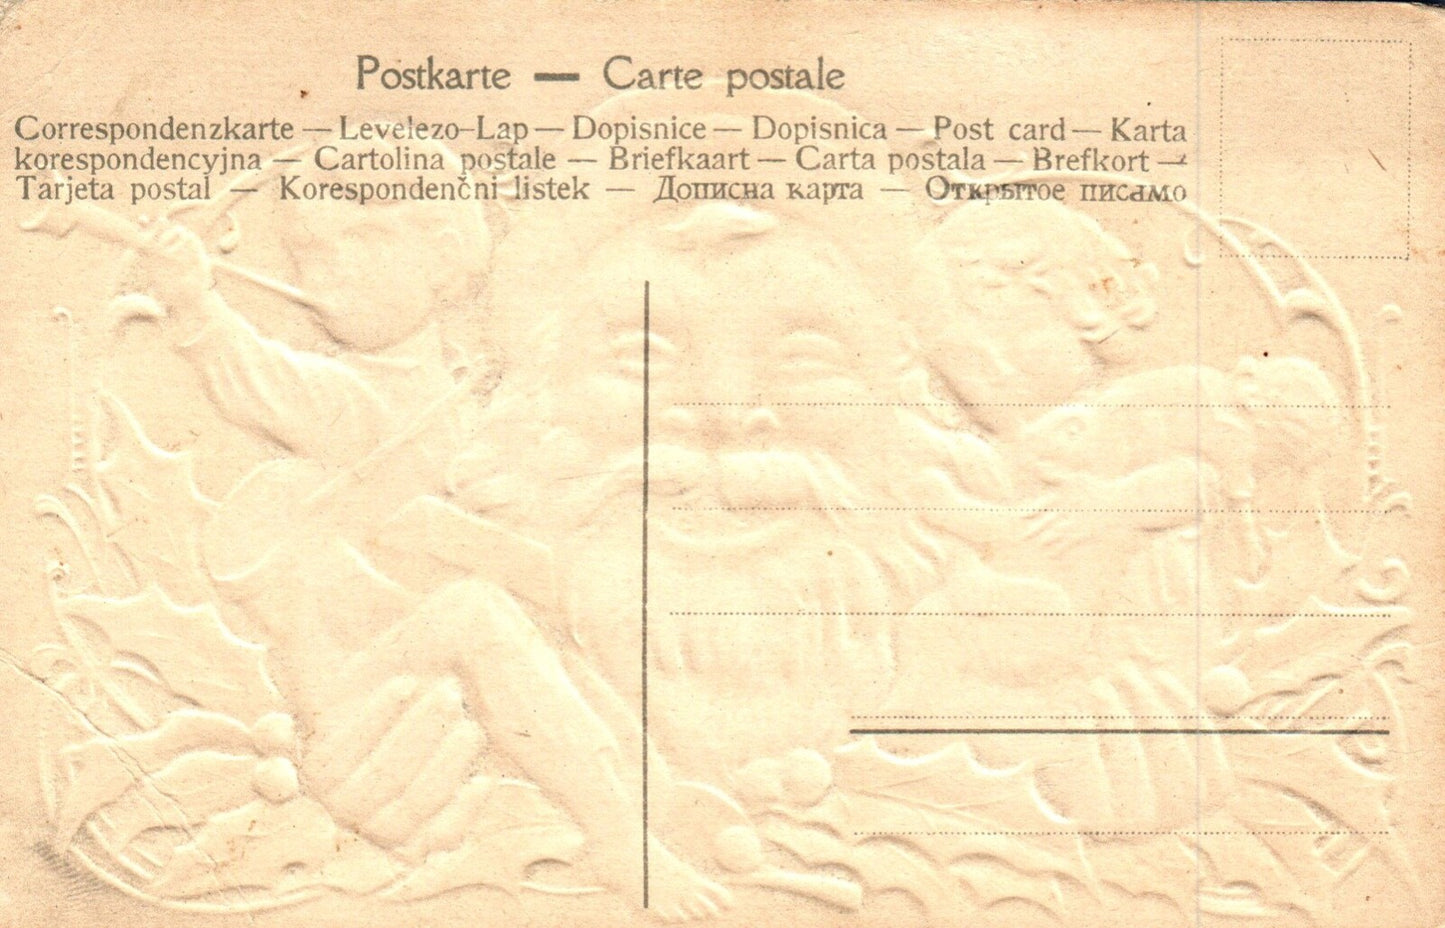 Postkarte — Carte postale
Correspondenzkarte — Levelezo-Lap — Dopisnice — Dopisnica — Post card — Karta
korespondencyjna — Cartolina postale — Briefkaart — Carta postala — Brefkort —
Tarjeta postal — Korespondenčni listek — Дописна карта — Открытое писамо